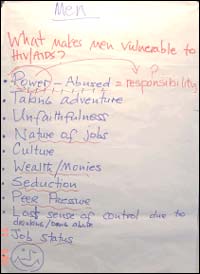 Men
What makes men vulnerable to
HIV/AIDS?
• Power - Abused = responsibility
• Taking adventure
• Unfaithfulness
• Nature of jobs
• Culture
• Wealth/Monies
• Seduction
• Peer Pressure
• Loss sense of control due to
drinking/drug abuse
• Job status